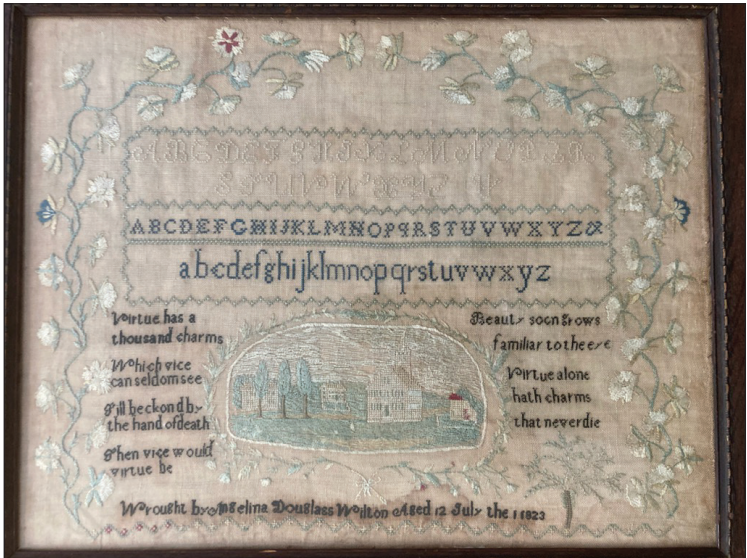 A B C D E F G H I J K L M N O P Q R
S T U V W X Y Z
ABCDEFGHIJKLMNOPQRSTUVWXYZ&
abcdefghijklmnopqrstuvwxyz
Virtue has a
thousand charms
Which vice
can seldom see
Till beckond by
the hand of death
Then vice would
virtue be
Beauty soon grows
familiar to the eye
Virtue alone
hath charms
that never die
Wrought by Angelina Douglass Wilton Aged 12 July the 1823